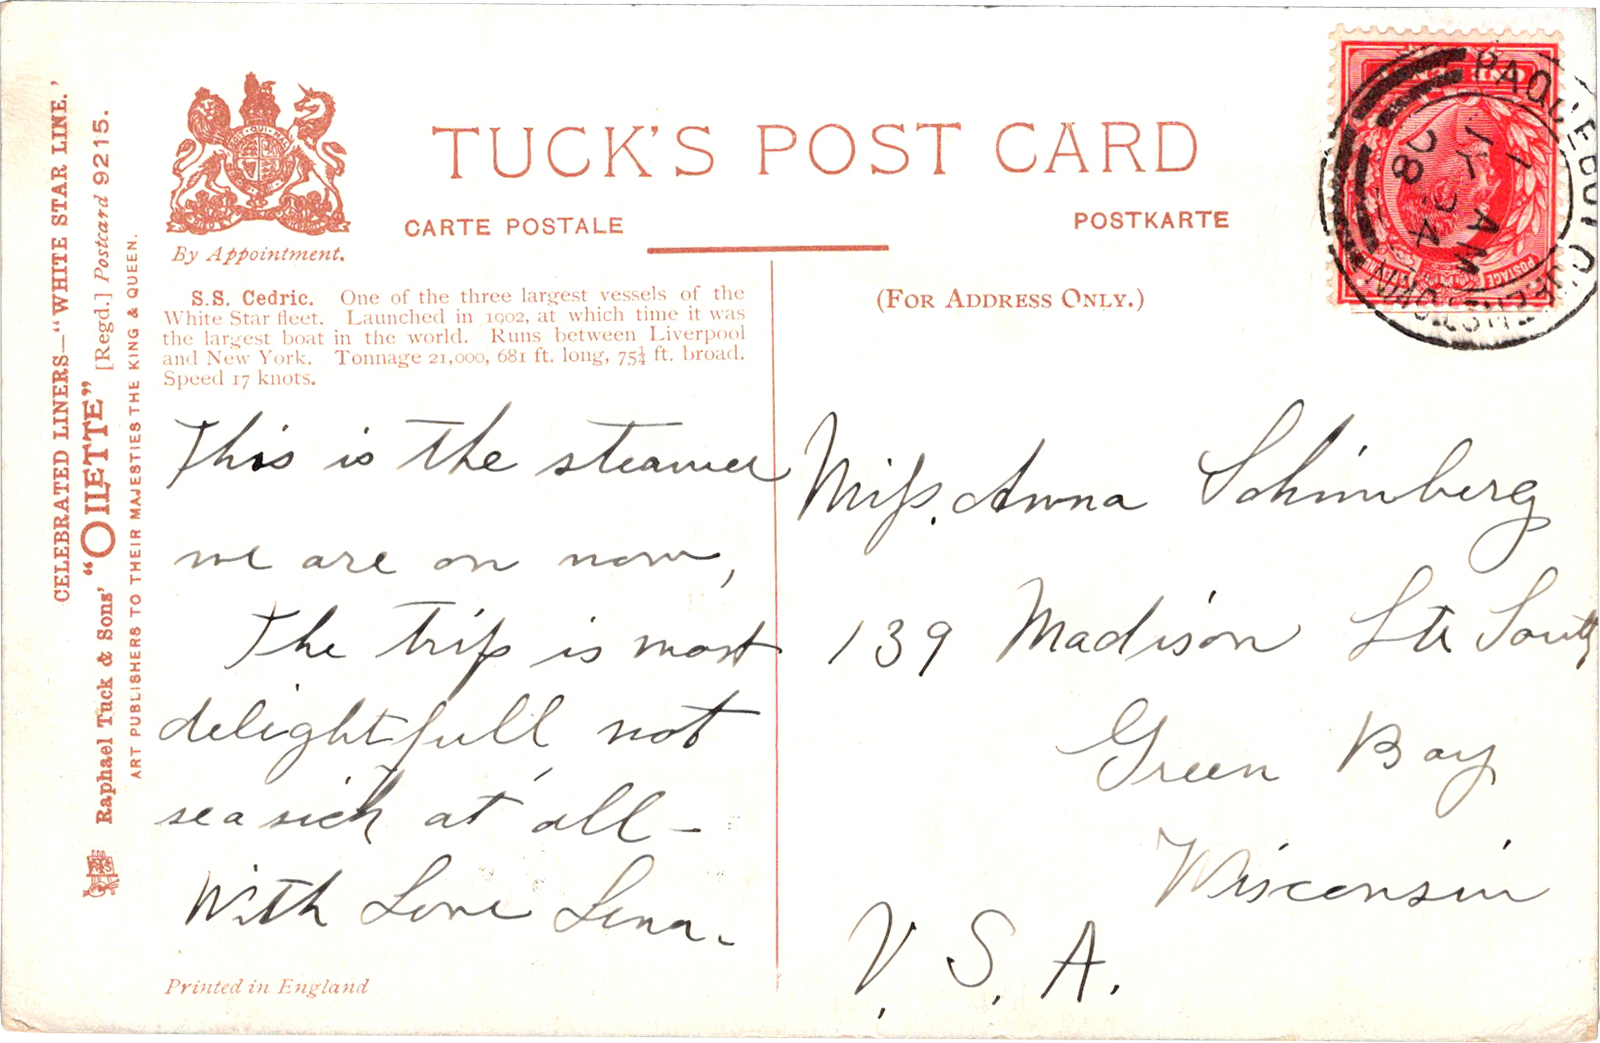 CELEBRATED LINERS—"WHITE STAR LINE.'
Raphael Tuck & Sons' "OILETTE" [Regd.] Postcard 9215.
ART PUBLISHERS TO THEIR MAJESTIES THE KING & QUEEN.
By Appointment.
TUCK'S POST CARD
CARTE POSTALE
POSTKARTE
S.S. Cedric. One of the three largest vessels of the
White Star fleet. Launched in 1902, at which time it was
the largest boat in the world. Runs between Liverpool
and New York. Tonnage 21,000, 681 ft. long, 75¼ ft. broad.
Speed 17 knots.
This is the steamer
we are on now,
The trip is most
delightfull, not
seasick at all –
With Love Lena.
Printed in England
(FOR ADDRESS ONLY.)
Miss. Anna Schimberg
139 Madison Str South
Green Bay
Wisconsin
U. S. A.
PAQUEBOT QUEENSTOWN
1 AM
JY
28 04
ONE PENNY
POSTAGE